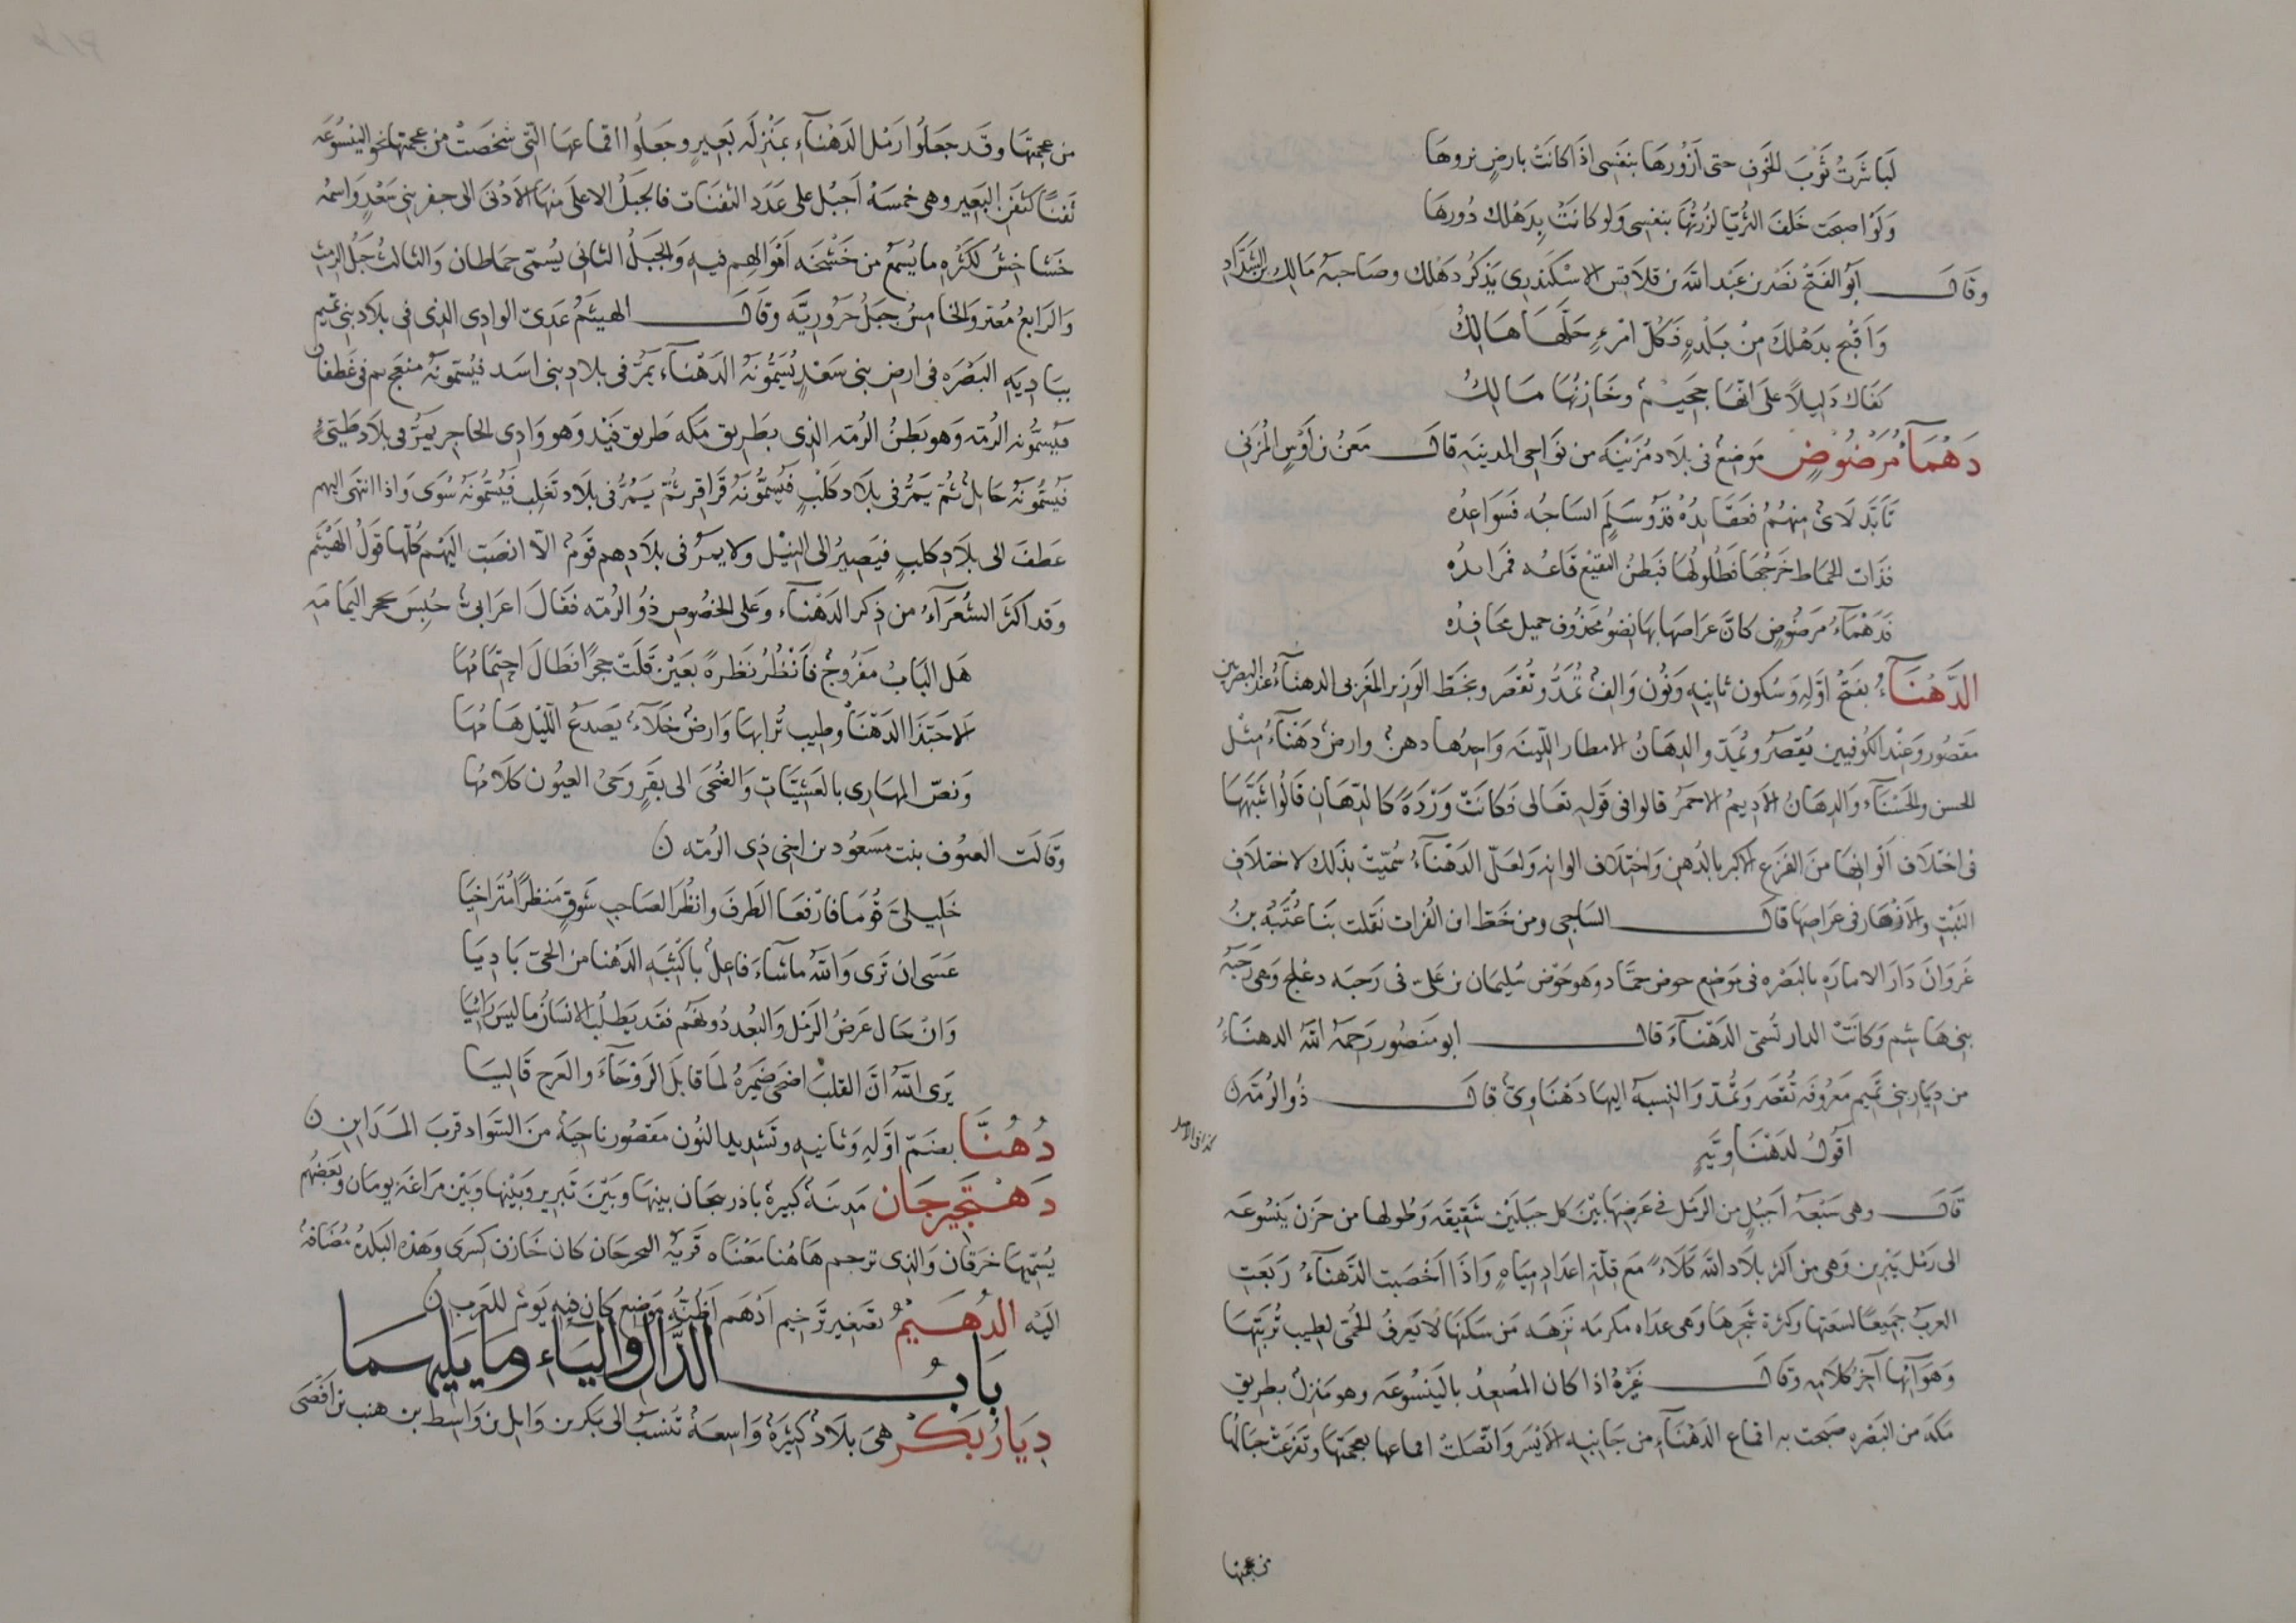 لَبَاشَرتُ ثَوبَ الخَوفِ حتى اَزُورَهَا بنفسِى اذَا كانَتْ بارضٍ نروهَا
وَلَوْ اصبحَت خَلفَ الثُريّا لزُرتُهَا بنفسِى وَلو كانَتْ بِدَهْلك دُورهَا
وقَالَ اَبُو الفَتْح نَصْر بن عَبْد اللّه بن قلاَقِس الاسْكَنْدرِى يَذكُر دَهْلك وصَاحبهُ مَالِك بن الشدَّادِ
وَاَقْبح بدَهْلكَ مِنْ بَلْدهٍ فَكلّ امْرءٍ حَلّهَا هَالِكُ
كَفَاك دَلِيلاً عَلى اَنّهَا جَحَيْم وخَازنُهَا مَالِكُ
دَهْمَآءُ مَرْضُوضٍ مَوضِعُ فى بلَاد مُزَيْنَة من نوَاحى المدينَهِ قالَ مَعْنُ بن اَوْسٍ المُزَنى
تَاَبّدَ لَاىٌ مِنهُمُ فعَتَايدُهْ فذُو سَلَمٍ انسَاجُه فَسَوَاعِدُه
فذَات الحَمَاط خَرْجُهَا فطُلُولُهَا فبَطنُ البقيْع قَاعُه فمَرابدُه
فدَهْمَآءُ مرضُوضٍ كانّ عرَاصهَا بهَا نِضوُ محَذُوف جميل محَافِدُه
الدَّهْنَآءُ بفَتْح اوّلهِ وَسُكون ثانيهِ وَنُون وَالفٌ تُمَدُّ وتُقصَر وبخَطّ الوَزير المَغربى الدهنَآءُ عندَ البصريّين
مَقصُور وَعِنْد الكُوفيين يُقصَرُ ويُمَدّ والدِهَانُ الامطار اللّينَه وَاحِدُها دهنٌ وارض دَهْنَآءُ مِثْل
الحسن والحَسْنَآء وَالدهَانُ الاَدِيمُ الاحمَرُ قالوا فى قوَله تعَالى فكانَتْ وَرْدَةً كَالدّهَان قَالُوا شَبّهَهَا
فى اختلَاف اَلوَانِهَا منَ الفزَع الاكبر بالدُهن وَاختِلَاف الوانِه وَلعَلّ الدَهْنَآءَ سُمّيَتْ بذَلك لاختلَافِ
النَبْتِ والاَزهَار فى عرَاصِهَا قالَ السَاجى ومن خَطّ ابن الفُرات نقَلت بنَا عُتْبَهُ بنُ
غزوَانَ دَارَ الامارَهِ بالبَصْره فى مَوضِع حوض حَمّاد وهو حَوْض سُليمَان بن عَلىّ فى رَحبَه دعلج وَهى رَحبَهُ
بنى هَاشم وَكانَتْ الدار تُسَمّى الدَهْنآءَ قالَ ابو مَنصُور رَحمَهُ اللّهُ الدهنَآءُ
من دِيَار بنى تَميم مَعرُوفَه تُقصَر وَتُمَدّ وَالنسبَهُ اليهَا دَهْنَاوِىٌ قالَ ذُو الرُمّة ن
اقوُلُ لدَهْنَاوِيّةٍ
كذا فى الاصل
قَالَ وهى سَبْعَهُ اَجبُلٍ من الرَمْل فى عَرضِهَا بَيْنَ كل جبَلَيْن شَقيقَه وَطولها من حَزن يَنْسُوعَه
الى رَمْل يَبْرين وَهى من اَكثر بلاَد اللّه كَلَاءً مَع قِلّةِ اعدَادِ مِيَاهٍ وَاذَا اَخْصَبت الدَهنَآءُ رَبَعَتِ
العرَبُ جَميعًا لسعَتها وكثرة شَجَرهَا وَهى عدَاه مكرمَه نَزهَه مَن سَكَنَهَا لاَ يَعرفُ الحُمّى لطيب تُربَتِهَا
وَهوَآئِهَا آخرُ كلاَمِه وقالَ غَيْرهُ اذا كان المُصعِدُ باليَنسُوعَه وهو مَنزِلٌ بطَريق
مَكة من البَصْره صَبحت به اقماع الدَهْنَآءِ من جَانِبه الاَيْسَر وَاتّصَلتْ اقماعها بعُجمتهَا وتَفرعَتْ جبَالُهَا
من عجمتها
من عُجمَتهَا وقد جَعلُوا رَمْل الدَهْنآءِ بمَنْزلَه بَعِيرٍ وجعَلُوا اقماعهَا التّى شخصَتْ من عجمتها نحو اليَنْسُوعَه
ثَفنًا كثَفن البَعير وهى خمسَهُ اَجبُل على عَدَد الثَفنَات فالجبَلُ الاعلَى منهَا الاَدْنَى الى حفر بنى سَعْدٍ وَاسمهُ
خَشَاخِشُ لكَثْرهِ ما يُسْمَع من خَشْخشَه اَمْوَالهِم فيهِ وَالجَبَلُ الثانى يُسَمّى حمَاطَان وَالثالثُ جَبَلُ الرمْثِ
وَالرَابعُ مُعَبر وَالخامِسُ جبَلُ حَرُوريَّه وقَالَ الهيثَمُ عَدِىّ الوادِى الذِى فى بلَاد بَنى تَميمٍ
ببَادِيَهِ البَصْرَه فى ارضِ بنى سَعْدٍ يُسَمُّونَهُ الدَهْنَآءَ يَمُرُّ فى بلادِ بنى اسَد فيُسَمّونَهُ منعَج ثم فى غَطفان
فيُسَمُّونَه الرُمّه وَهو بَطنُ الرُمّه الذِى بطَريق مَكه طَريق فَيْد وَهو وَادِى الحاجر يَمرُّ فى بلاَد طَيّئ
فيُسَمُّونَهُ حَايِلٌ ثُمّ يَمرُّ فى بلَاد كَلْبٍ فيُسَمُّونَهُ قَرَاقر ثُمّ يَمُرُّ فى بلَاد تَغلِب فَيُسَمُّونَهُ سُوَى وَاذا انتهَى اليهِم
عَطفَ الى بلَادِ كلبٍ فيَصِيرُ الى النِيْل ولا يمرُّ فى بلاَدِهم قَومٌ الاّ انصَبَّ اليْهم كلّهَا قَولُ الهَيْثَم
وَقد اكثَرَ الشُعَرَآءُ من ذِكر الدَهْنَآء وَعَلى الخصُوصِ ذُو الرُمّه فقَالَ اعرَابىٌ حُبِسَ بحجر اليمَامَه
هَل البَابُ مَفرُوجٌ فاَنْظُرُ نَظرةً بعَيْن قَلَتْ حجرًا فَطَالَ احتمَامُهَا
اَلا حَبّذا الدَهْنَا وَطِيب تُرابهَا وَارضٌ خَلاَءٌ يَصدَعُ اللّيْل هَامُهَا
وَنصّ المهَارِى بالعَشِيّاتِ وَالضُحَى الى بقَرٍ وَحىُ العيُون كلَامُهَا
وَقالَت العيوف بنت مَسعُود بن اخِى ذِى الرُمّه ن
خَلِيلىّ قُومَا فَارْفعَا الطَرفَ وانظُرَا لصَاحبِ شَوقٍ مَنظرًا مُتَراخِيَا
عَسَى ان نَرَى وَاللّهُ ماشَآءَ فَاعِلٌ باكثبَهِ الدَهْنا من الحىّ بَادِيَا
وَانْ حَال عَرضُ الرَمْل وَالبُعْد دُونَهُم فقَد يَطلُبُ الانسَانُ ما ليسَ رَائِيَا
يَرَى اللّهُ انّ القلبَ اضحَى ضَميرُهُ لمَا قابَلَ الرَوْحَآءَ وَالعَرج قَاليَا
دُهُنَّا بضَمّ اوّلهِ وَثانيهِ وتَشديد النُون مَقصُور ناحِيَهُ منَ السَّوَاد قربَ المَدَاين ن
دَهْنَجِيرجَان مَدينَهُ كبيرهُ باذربيجَان بينهَا وبَيْنَ تَبريز وَبَيْنها وَبَيْن مَرَاغَهَ يومَان وبَعضُهُم
يُسَمّيهَا خرَقان وَالذِى ترجم هَاهُنا مَعْنَاه قَريَهُ النخيرجَان كان خَازن كِسرَى وَهَذه البَلدهُ مُضَافهُ
اليْه الدُهَيْمُ تصغير تَرخِيم اَدْهَم اَظُنّه مَوضِع كان فيه يَومٌ للعَرب ن
بَابُ الدَّال وَاليَاء وما يَليهمَا
دِيَارُ بَكر هىَ بلَادُ كَبيرَهُ وَاسعَهُ تُنسَبُ الى بَكر بن وَايل بن واسِط بن هنب بن اَفْصَى